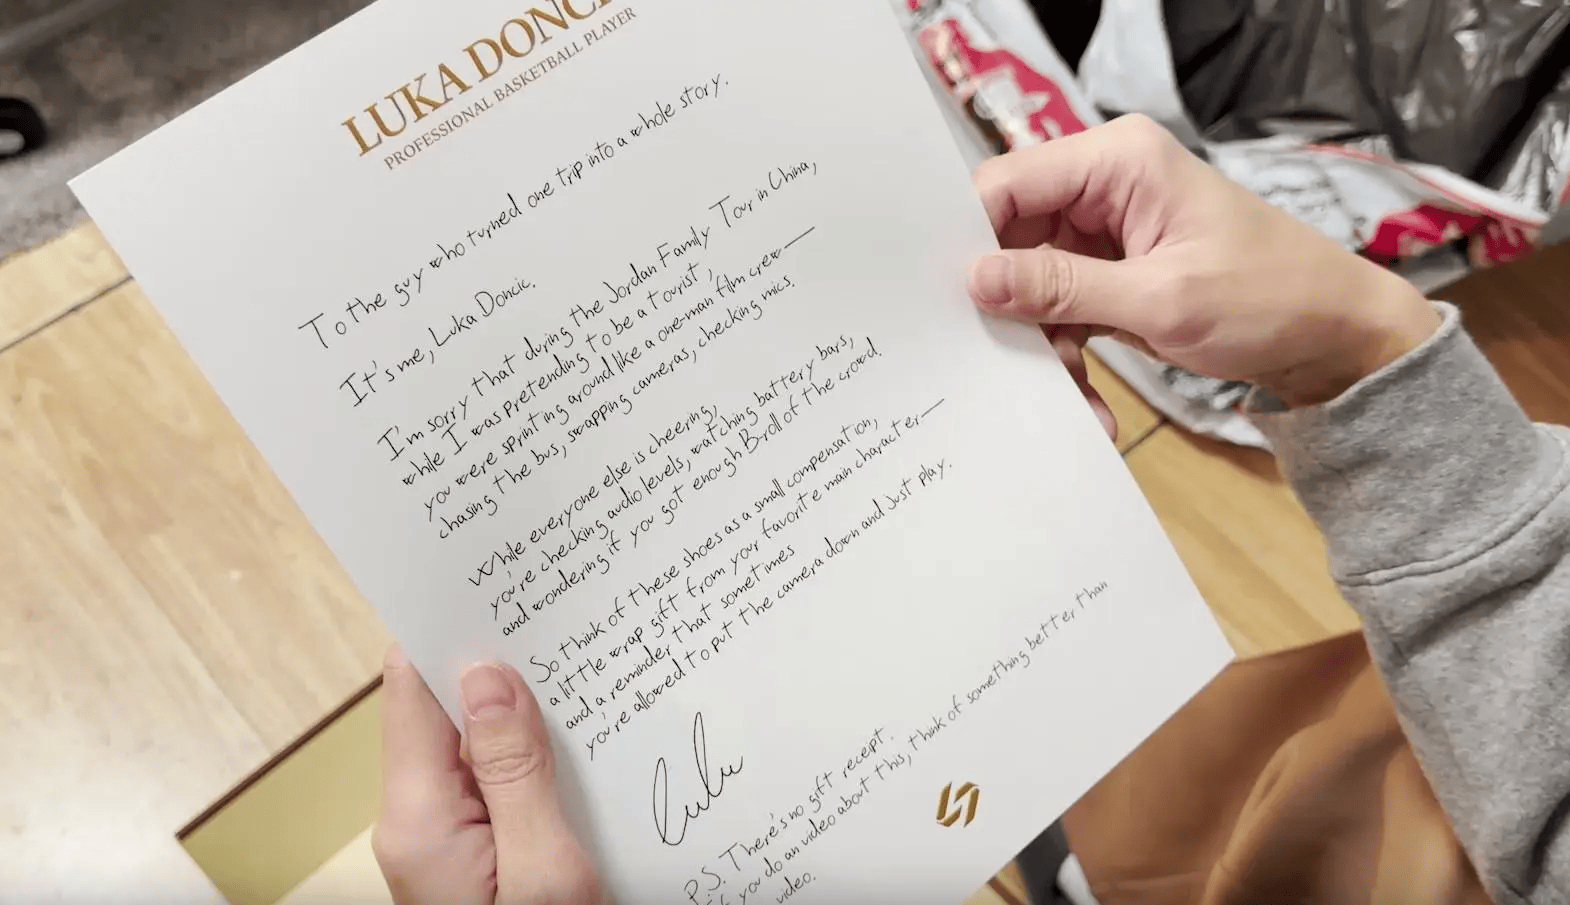 LUKA DONCI
PROFESSIONAL BASKETBALL PLAYER
To the guy who turned one trip into a whole story.
It's me, Luka Doncic.
I'm sorry that during the Jordan Family Tour in China,
while I was pretending to be a tourist,
you were sprinting around like a one-man film crew—
chasing the bus, swapping cameras, checking mics.
While everyone else is cheering,
you're checking audio levels, watching battery bars,
and wondering if you got enough B-roll of the crowd.
So think of these shoes as a small compensation,
a little wrap gift from your favorite main character—
and a reminder that sometimes
you're allowed to put the camera down and just play.
P.S. There's no gift receipt.
if you do an video about this, think of something better than
video.